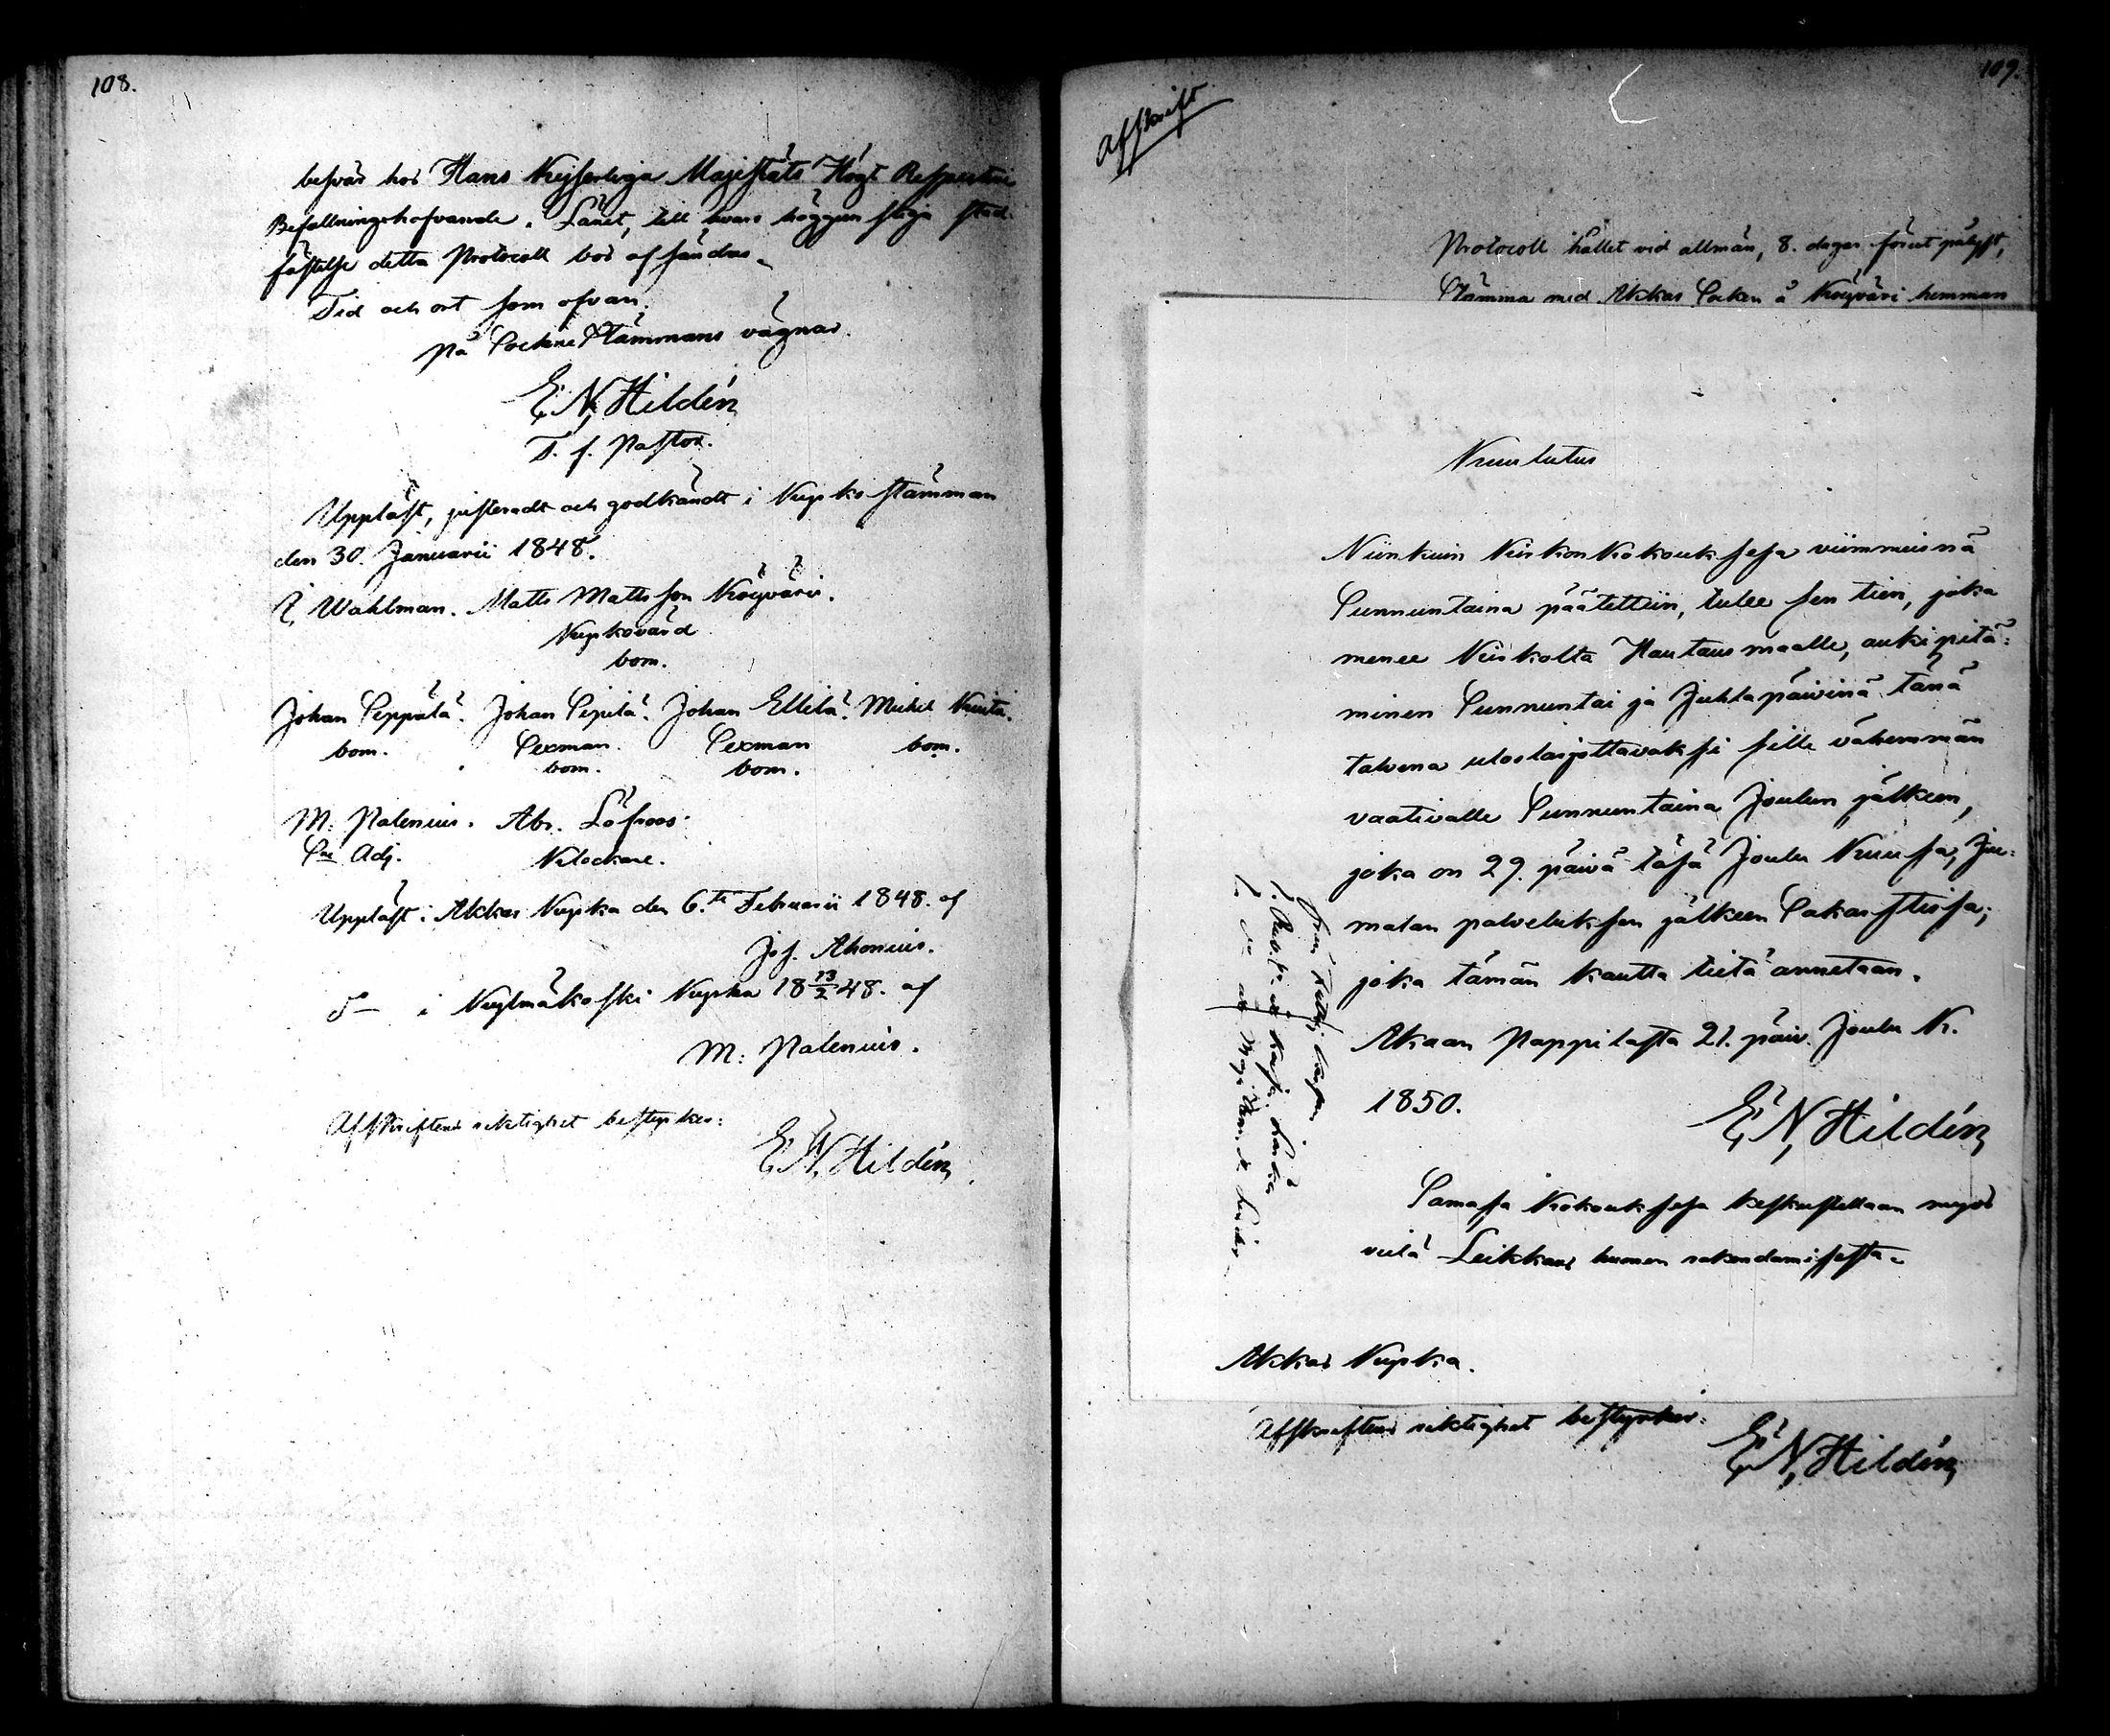 108.
besvär hos Hans Kejserliga Majestäts Högt Respective
Befallningshafvande i Länet, till hvars höggunstiga stad-
fästelse detta Protocoll bör afsändas.
Tid och ort som ofvan.
på SockneStämmans vägnar.
E. N. Hildén
T. f. Pastor.
Uppläst, justeradt och godkändt i Kyrko stämman
den 30. Januarii 1848.
Wahlman. Matts Mattsson Köyväri.
Kyrkovärd
bom.
Johan Seppälä. Johan Sipilä. Johan Ellilä. Michel
bom. Sexman. Sexman bom.
bom. bom.
M: Palenius. Abr. Löfroos.
Sne Adj. Klockare.
Uppläst i Akkas Kyrka den 6.te Februarii 1848. af
Jos. Ahonius.
i Kylmäkoski Kyrka 18 13/2 48. af
M: Palenius.
Afskriftens riktighet bestyrker:
E. N. Hildén
109.
Afskrift
Protocoll hållet vid allmän, 8. dagar förut pålyst,
Stämma med Akkas Socken å Köyväri hemman
Kuulutus
Niinkuin Kirkon Kokouksesa viimmeisnä
Sunnuntaina päätettiin, tulee sen tien, joka
menee Kirkolta Hautausmaalle, auki pitä-
minen Sunnuntai ja Juhlapäivinä tänä
talvena uloslaijottavaksi sille vähemmän
vaativalle Sunnuntaina Joulun jälkeen,
joka on 29. päivä täsä Joulu Kuusa, Ju-
malan palveluksen jälkeen Sakastissa;
joka tämän kautta tietä annetaan.
Akaan Pappilasta 21. päiv. Joulu K.
1850.
E. N. Hildén
Samassa Kokouksesa keskustellaan myös
vielä Leikkaus huonen rakendamisesta.
Akkas Kyrka.
Afskriftens riktighet bestyrker:
E. N. Hildén